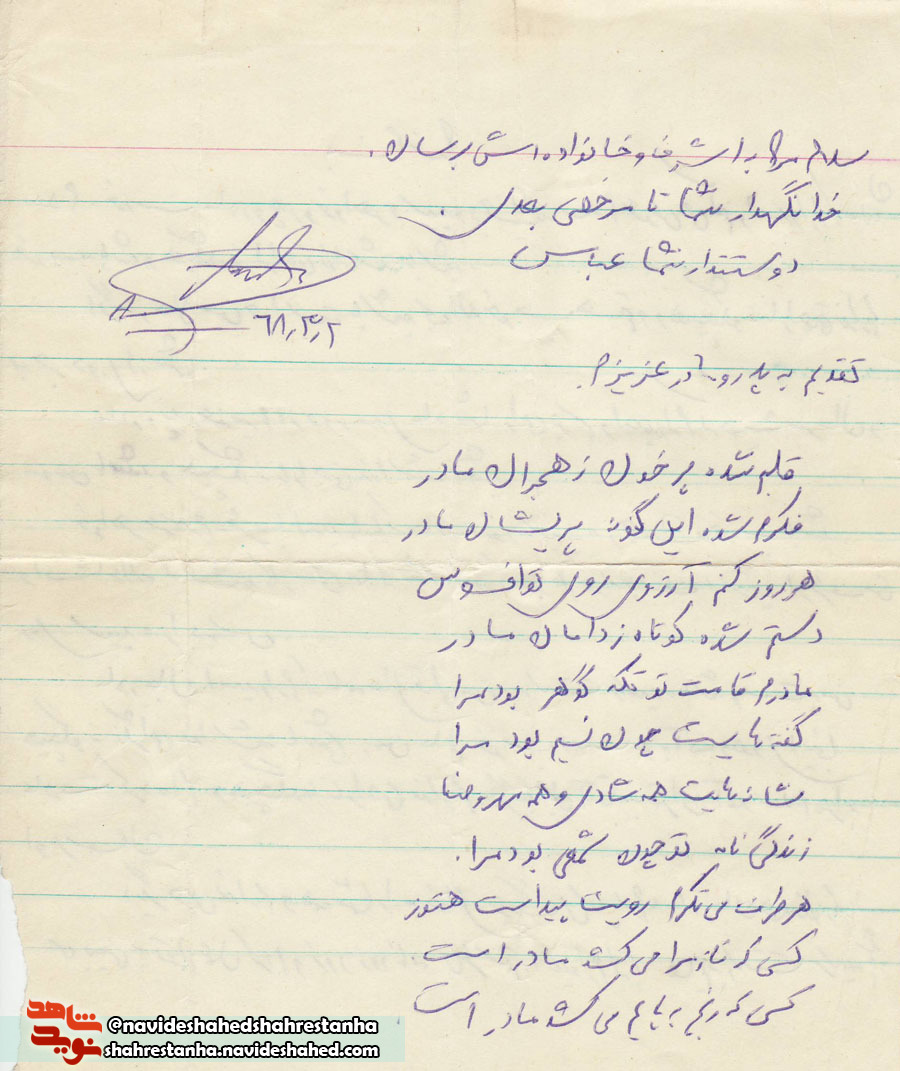 سلام مرا به اشرف و خانواده اش برسان.
خدا نگهدار شما تا مرخصی بعدی.
دوستدار شما عباس
۶۸٫۳٫۲
تقدیم به پدر و مادر عزیزم.
قلبم شده پر خون ز هجران مادر
فکرم شده این گونه پریشان مادر
هر روز کنم آرزوی روی تو افسوس
دستم شده کوتاه ز دامان مادر
مادرم قامت تو تکه گوهر بود مرا
گفته هایت چون نسیم بود مرا
نشانه هایت همه شادی و همه مهر و صفا
زندگی نامه تو چون شمعی بود مرا.
هر طرف می نگرم رویت پیداست هنوز
کسی که ناز مرا می کشد مادر است.
کسی که رنج به پایم می کشد مادر است
شاهد
نوید
@navideshahedshahrestanha
shahrestanha.navideshahed.com